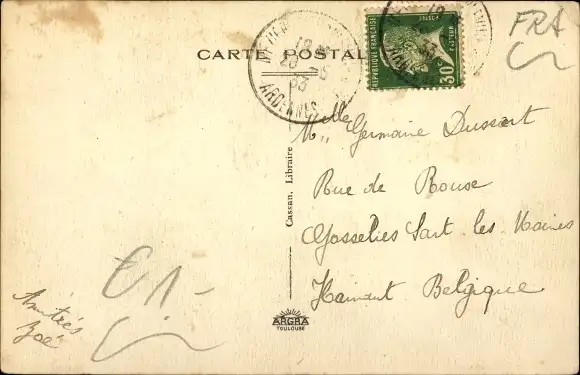 CARTE POSTALE
FRA
RÉPUBLIQUE FRANÇAISE
POSTES
30c
ARDENNES
Mlle Germaine Dussart
Rue de
Gosselies Sart les Moines
Hainaut Belgique
Cassan, Libraire
€ 1.-
Amitiés
Zoé
ARGRA
TOULOUSE